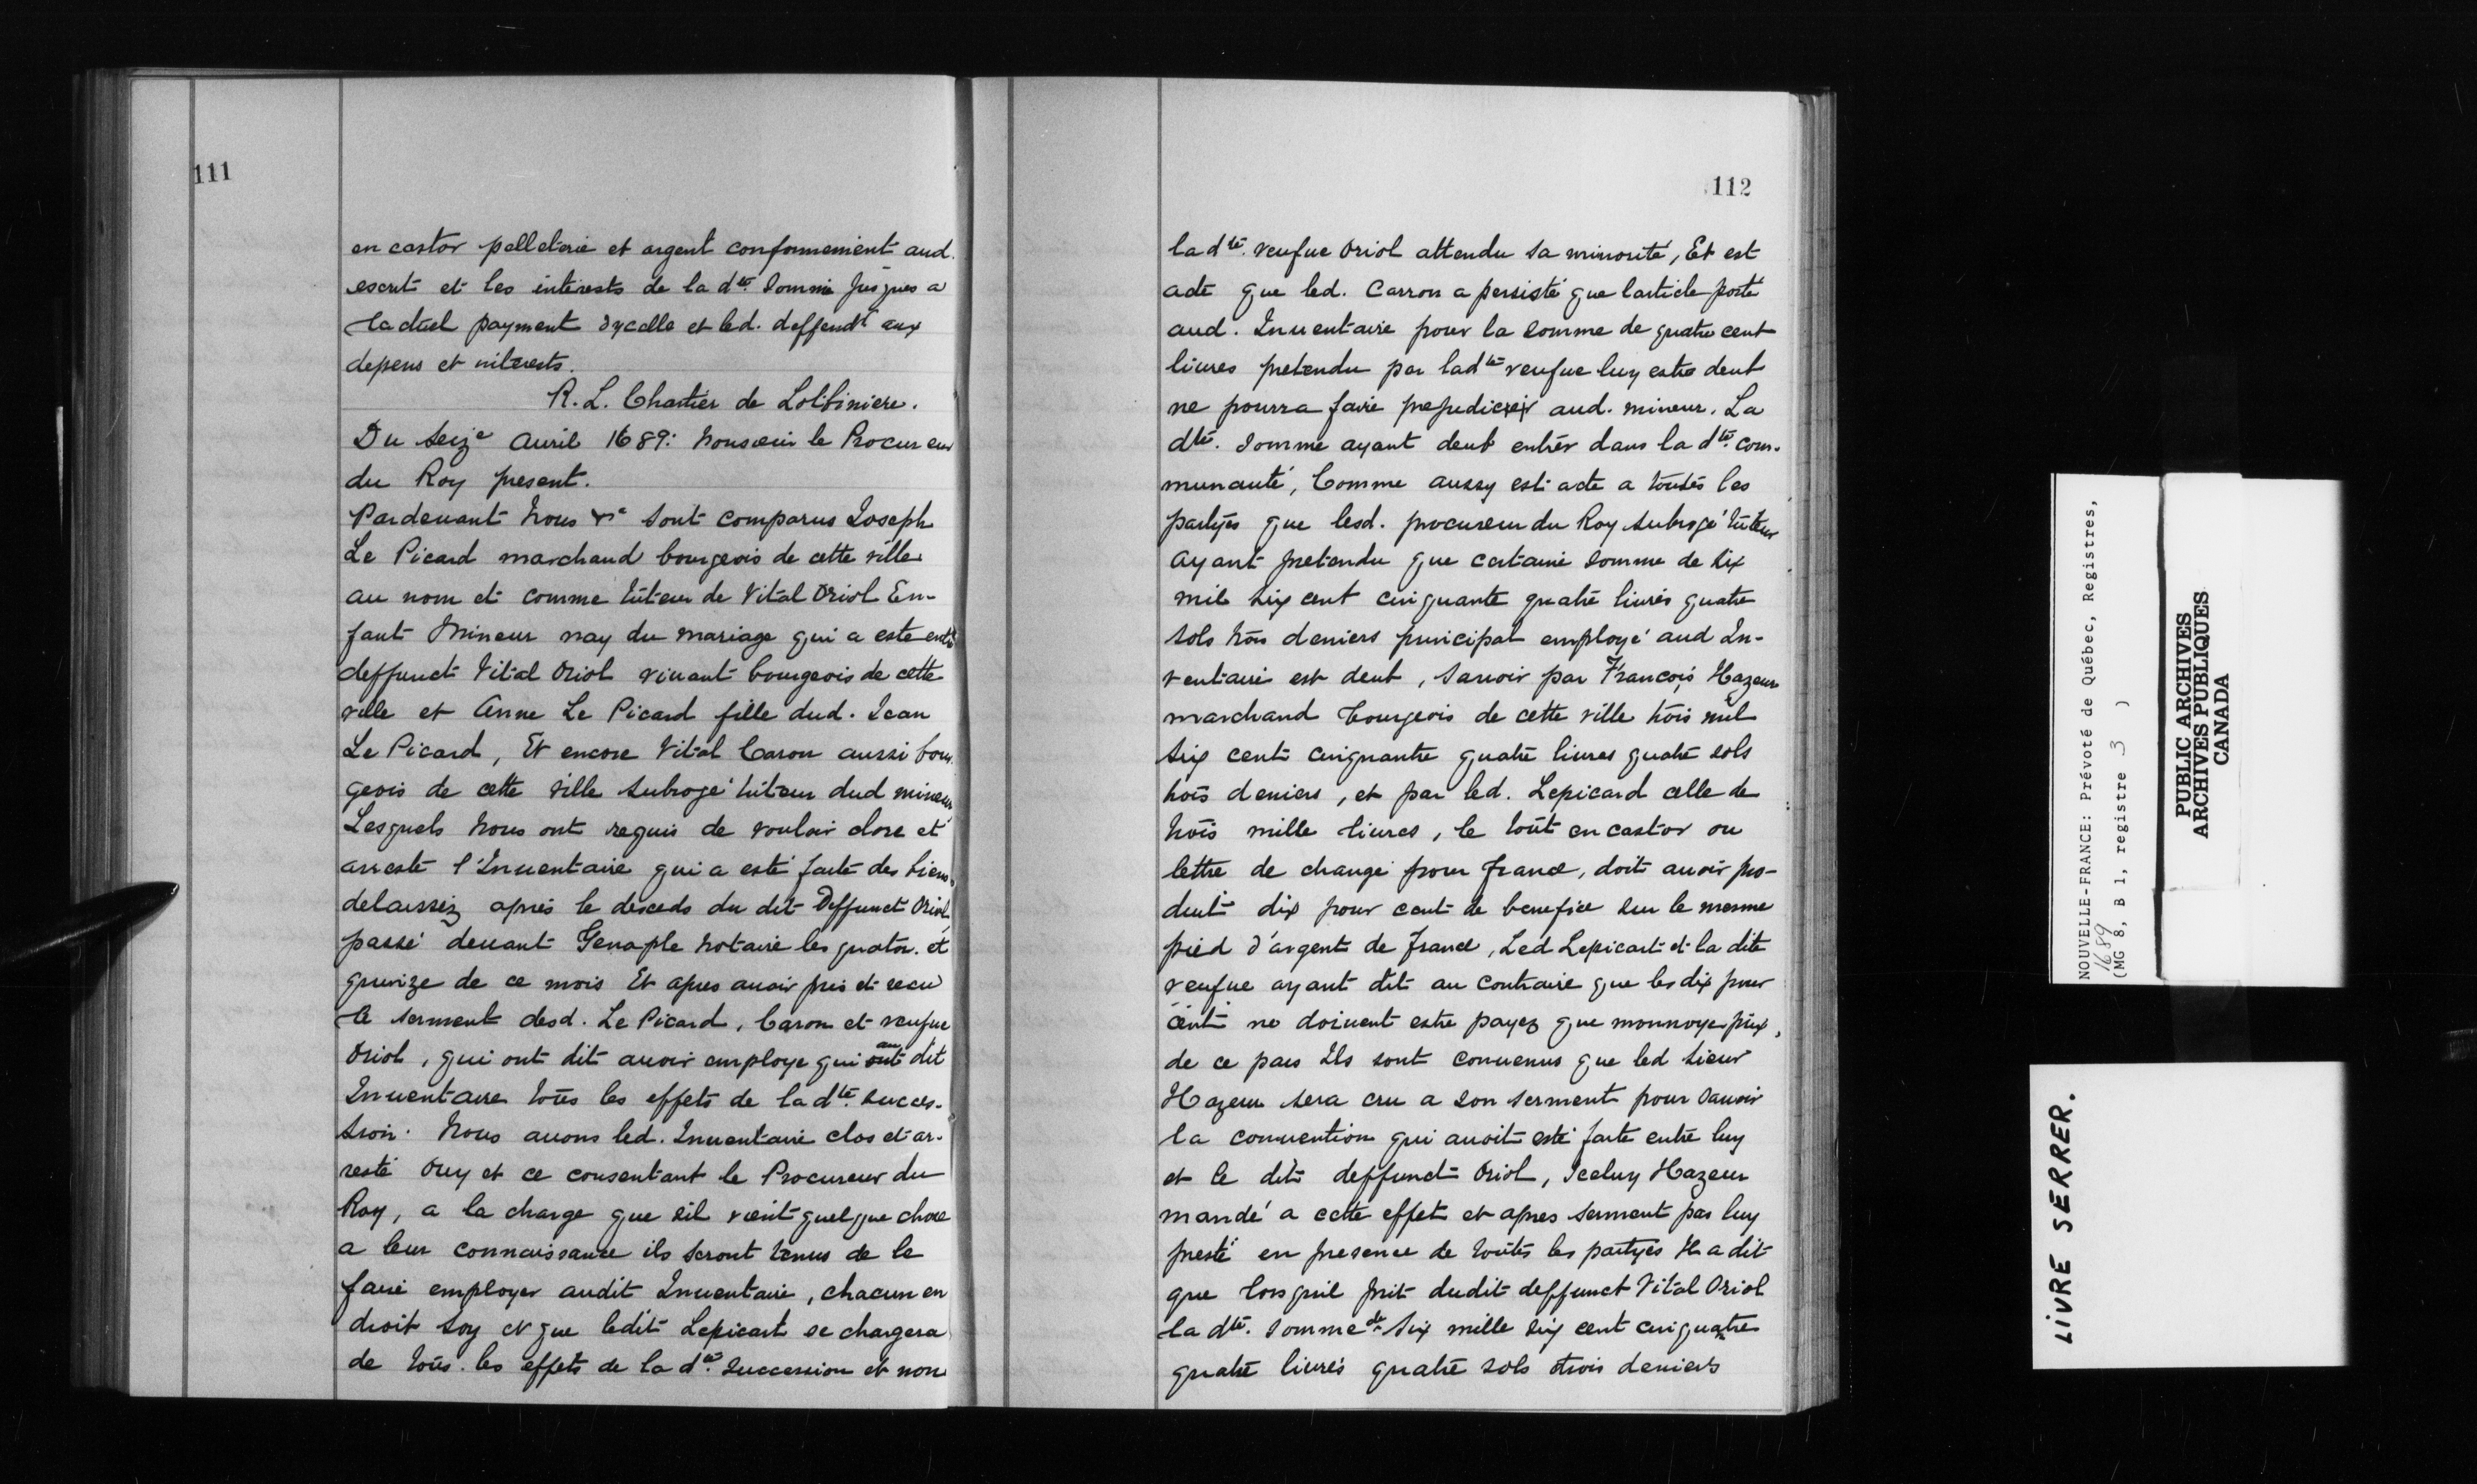 111
en castor pelleterie et argent conformement aud.
escrit et les interests de la dte. Somme jusques a
lactuel payment dycelle et led. deffendt aux
depens et interests.
R. L. Chartier de Lotbiniere.
Du Seize Auril 1689: Monsieur le Procureur
du Roy present.
Pardeuant Nous &c sont comparus Joseph
Le Picard marchand bourgeois de cette ville
au nom et comme tuteur de Vital Oriol En-
fant Mineur nay du mariage qui a este entre
deffunct Vital Oriol viuant bourgeois de cette
ville et Anne Le Picard fille dud. Jean
Le Picard, Et encore Vital Caron aussi bour
geois de cette ville Subrogé tuteur dud mineur
Lesquels Nous ont requis de vouloir clore et
arresté l'Inuentaire qui a esté faite des biens
delaissez après le desceds du dit Deffunct Oriol,
passé deuant Genaple Notaire les quator. et
quinze de ce mois Et apres auoir pris et receu
le serment desd. Le Picard, Caron et veufue
Oriol, qui ont dit auoir employe qui ont au dit
Inuentaire tous les effets de la dte. succes-
sion. Nous auons led. Inuentaire clos et ar-
resté Ouy et ce consentant le Procureur du
Roy, a la charge que sil vient quelque chose
a leur connaissance ils seront tenus de le
faire employer audit Inuentaire, chacun en
droit soy et que ledit Lepicart se chargera
de tous. les effets de la dte. succession et non
112
la dte. veufue Oriol attendu sa minorité, Et est
acte que led. Carron a persisté que larticle porté
aud. Inuentaire pour la somme de quatre cent
liures pretendu par ladte veufue luy estre deub
ne pourra faire prejudicier aud. mineur. La
dte. Somme ayant deub entrer dans la dte. com-
munauté, Comme aussy est acte a toutes les
partyes que lesd. procureur du Roy subrogé tuteur
ayant pretendu que certaine somme de six
mil six cent cinquante quatre liures quatre
sols trois deniers principal employé aud In-
ventaire est deub, sauoir par François Hazeur
marchand bourgeois de cette ville trois mil
six cent cinquante quatre liures quatre sols
trois deniers, et par led. Lepicard celle de
trois mille liures, le tout en castor ou
lettre de change pour france, doit auoir pro-
duit dix pour cent de benefice sur le mesme
pied d'argent de france, Led Lepicart et la dite
veufue ayant dit au contraire que les dix pour
cent ne doiuent estre payez que monnoye prix,
de ce pais Ils sont conuenus que led sieur
Hazeur sera cru a son serment pour sauoir
la conuention qui auoit esté faite entre luy
et le dit deffunct Oriol, Iceluy Hazeur
mandé a cette effet et apres serment par luy
presté en presence de toutes les partyes Il a dit
que lors quil prit dudit deffunct Vital Oriol
la dte. Somme de six mille six cent cinquatre
quatre liures quatre sols trois deniers
NOUVELLE-FRANCE: Prévoté de Québec, Registres,
1689
(MG 8, B 1, registre 3 )
PUBLIC ARCHIVES
ARCHIVES PUBLIQUES
CANADA
LIVRE SERRER.